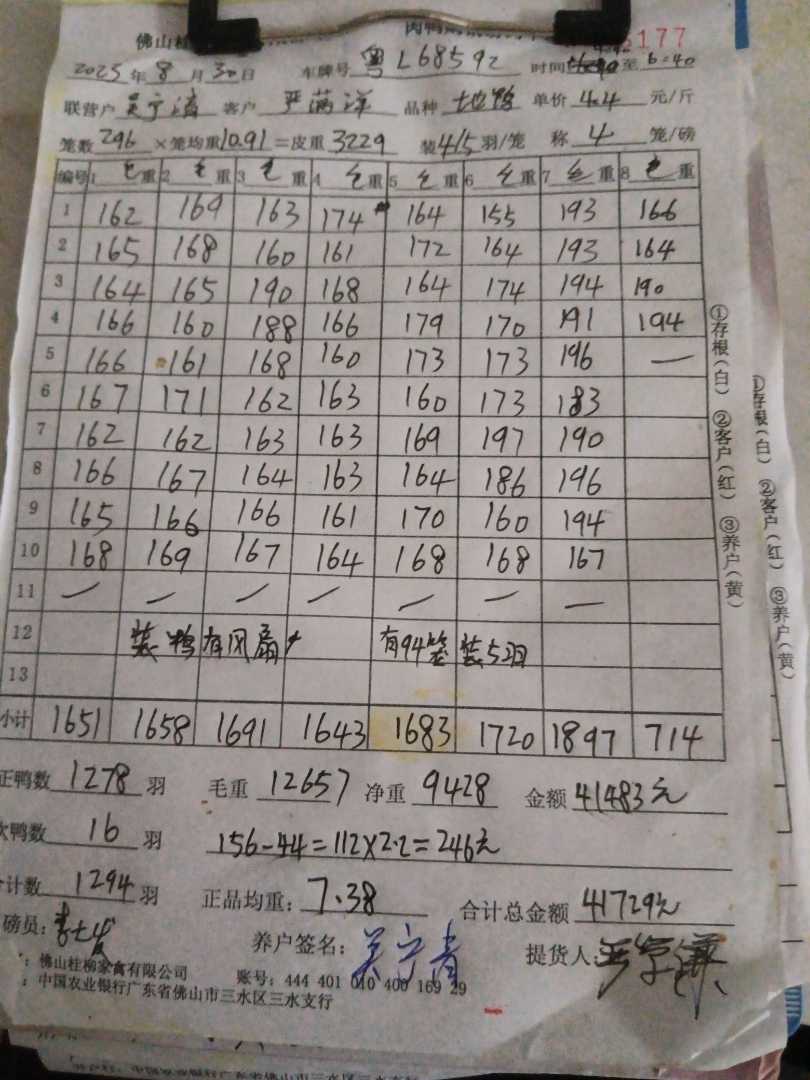 佛山桂
177
2025年8月30日 车牌号 粤L68592 时间 至 6:40
联营户 客户 严满洋 品种 地鸭 单价 4.4 元/斤
笼数 296 ×笼均重 10.91 =皮重 3229 装 4/5 羽/笼 称 4 笼/磅
编号 1 毛重 2 毛重 3 毛重 4 毛重 5 毛重 6 毛重 7 毛重 8 毛重
1 162 169 163 174 164 155 193 166
2 165 168 160 161 172 164 193 164
3 164 165 190 168 164 174 194 190
4 166 160 188 166 179 170 191 194
5 166 161 168 160 173 173 196 —
6 167 171 162 163 160 173 183
7 162 162 163 163 169 197 190
8 166 167 164 163 164 186 196
9 165 166 166 161 170 160 194
10 168 169 167 164 168 168 167
11 — — — — — — —
12 装鸭有风扇 有94笼装5羽
13
小计 1651 1658 1691 1643 1683 1720 1897 714
正鸭数 1278 羽 毛重 12657 净重 9428 金额 41483元
次鸭数 16 羽 156-44=112×2.2=246元
合计数 1294 羽 正品均重: 7.38 合计总金额 41729元
磅员:
养户签名: 提货人:
: 佛山桂柳家禽有限公司 账号: 444 401 010 400 169 29
: 中国农业银行广东省佛山市三水区三水支行
①存根(白) ②客户(红) ③养户(黄)
①存根(白) ②客户(红) ③养户(黄)